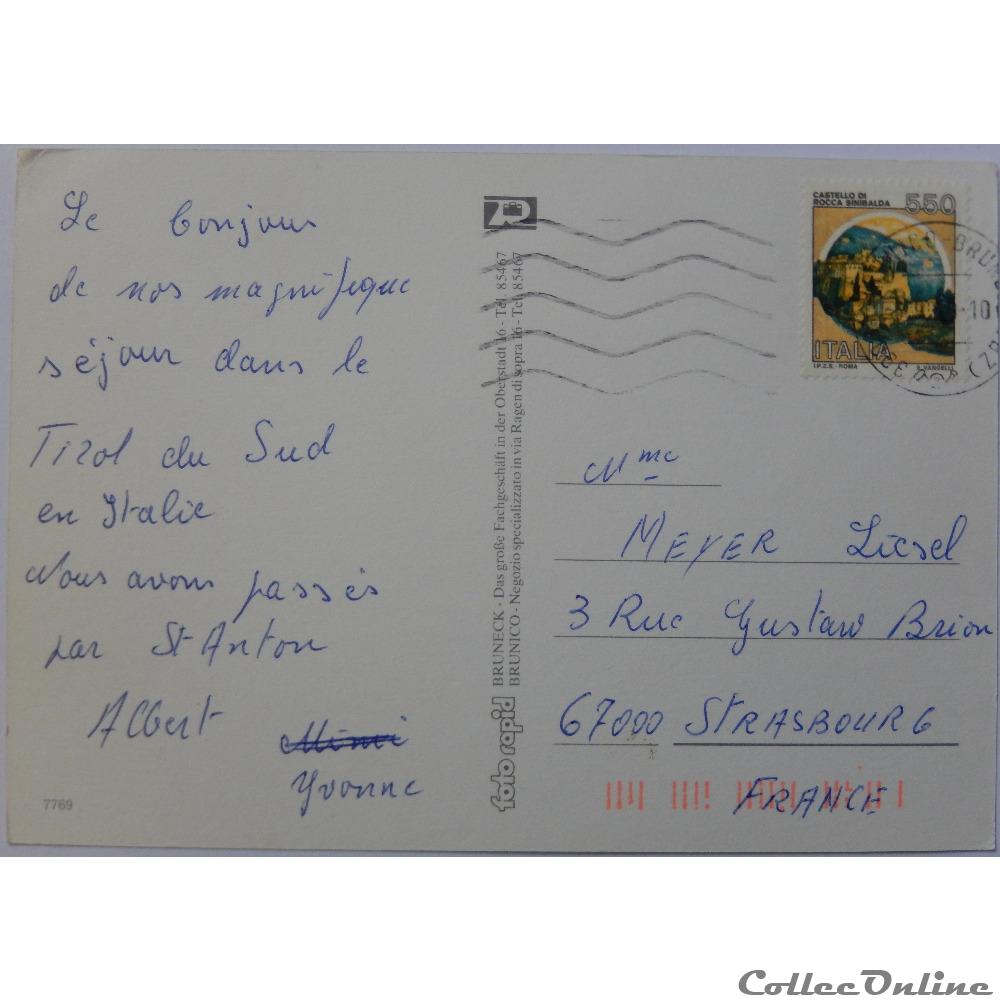 Le bonjour
de nos magnifique
séjour dans le
Tirol du Sud
en Italie
Nous avons passés
par St Anton
Albert
Mimi
Yvonne
7769
foto rapid
BRUNECK - Das große Fachgeschäft in der Oberstadt 16 - Tel. 85467
BRUNICO - Negozio specializzato in via Ragen di sopra 16 - Tel. 85467
CASTELLO DI
ROCCA SINIBALDA
550
ITALIA
I.P.Z.S. - ROMA E. VANGELLI
Mme
MEYER Liesel
3 Rue Gustav Brion
67000 STRASBOURG
FRANCE
CollecOnline